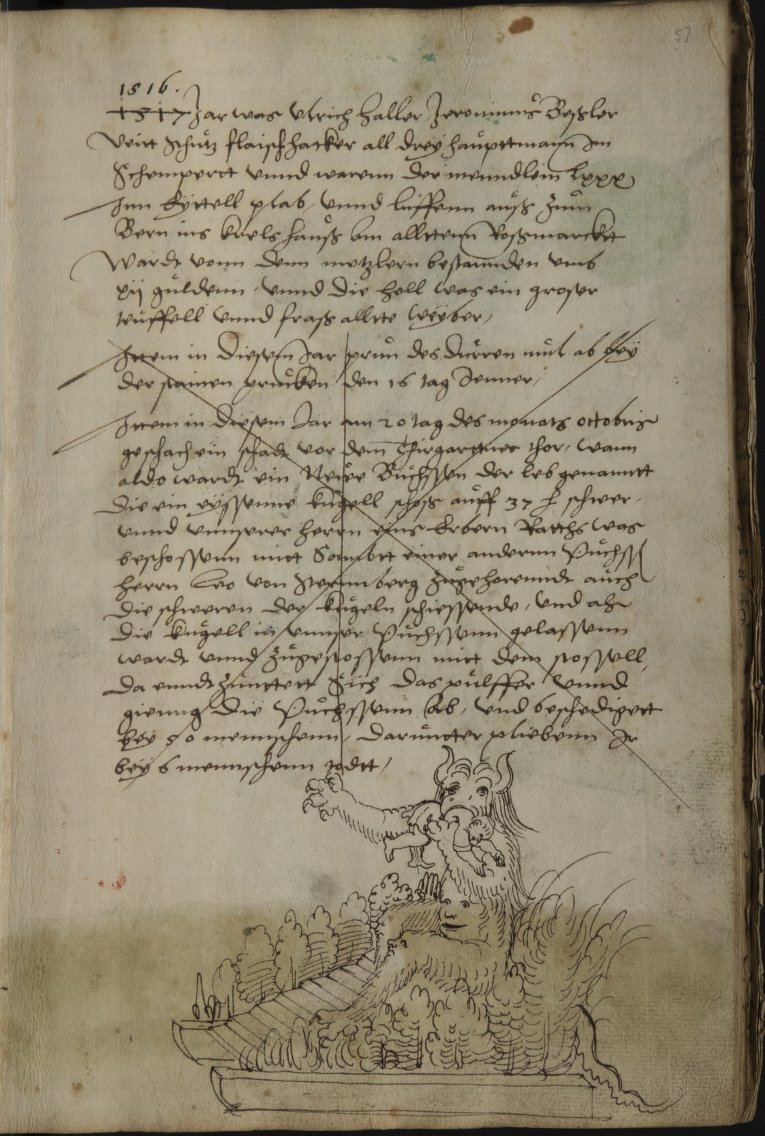 57
1516.
1517 Jar was Ulrich haller Jeronimus Beßler
Veit Schütz flaischhacker all drey haupttmann Im
Schempertt unnd warenn der menndlein lxxx
Inn kyttell plab unnd luffenn auß zum
Bern ins hauß am alltenn Roßmarckt
Wardt vonn denn metzlern bestannden umb
xij guldenn, unnd die hell was ein groser
teuffell unnd fraß allte weyber,
Ittem in diesem Jar prun des dürren mül ab bey
der stainen prucken den 16 tag Jenner,
Ittem in diesem Jar am 20 tag des monats octobris
geschach ein schadt vor dem Thirgarttner thor, wann
aldo wardt ein Neüe Büchssen der leb genanntt
die ein eyssenne kugell schoß auff 37 schwer,
unnd unnserer herrn eins Erbern Ratths was
beschossenn mitt Sambtt einer anderm Püchss
herrn Leo von Sternnberg zugeherenndt auch
die schweren der kugeln schiessende, und als
die kugell in unnser Püchssenn gelassenn
wardt unnd zugestossenn mitt dem stossell,
da enndtzünttett sich das pulffer unnd
gienng die Püchssenn ab, und beschedigett
bey 50 mennschenn, darunter pliebenn Ir
bey 6 mennschenn todtt,